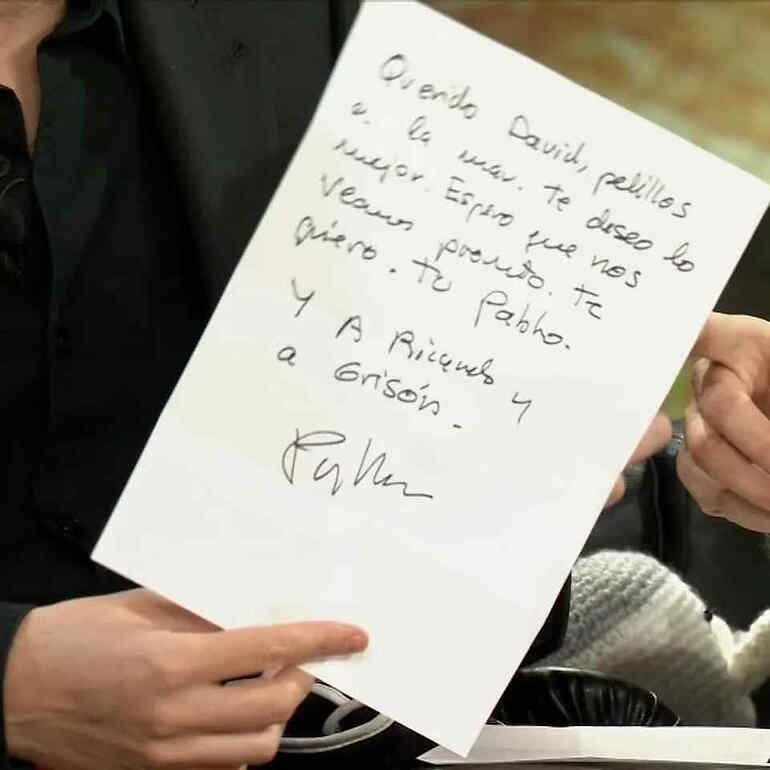 Querido David, pelillos
a la mar. te deseo lo
mejor. Espero que nos
veamos pronto. te
quiero. tu Pabho.
Y A Ricardo y
a Grisón.